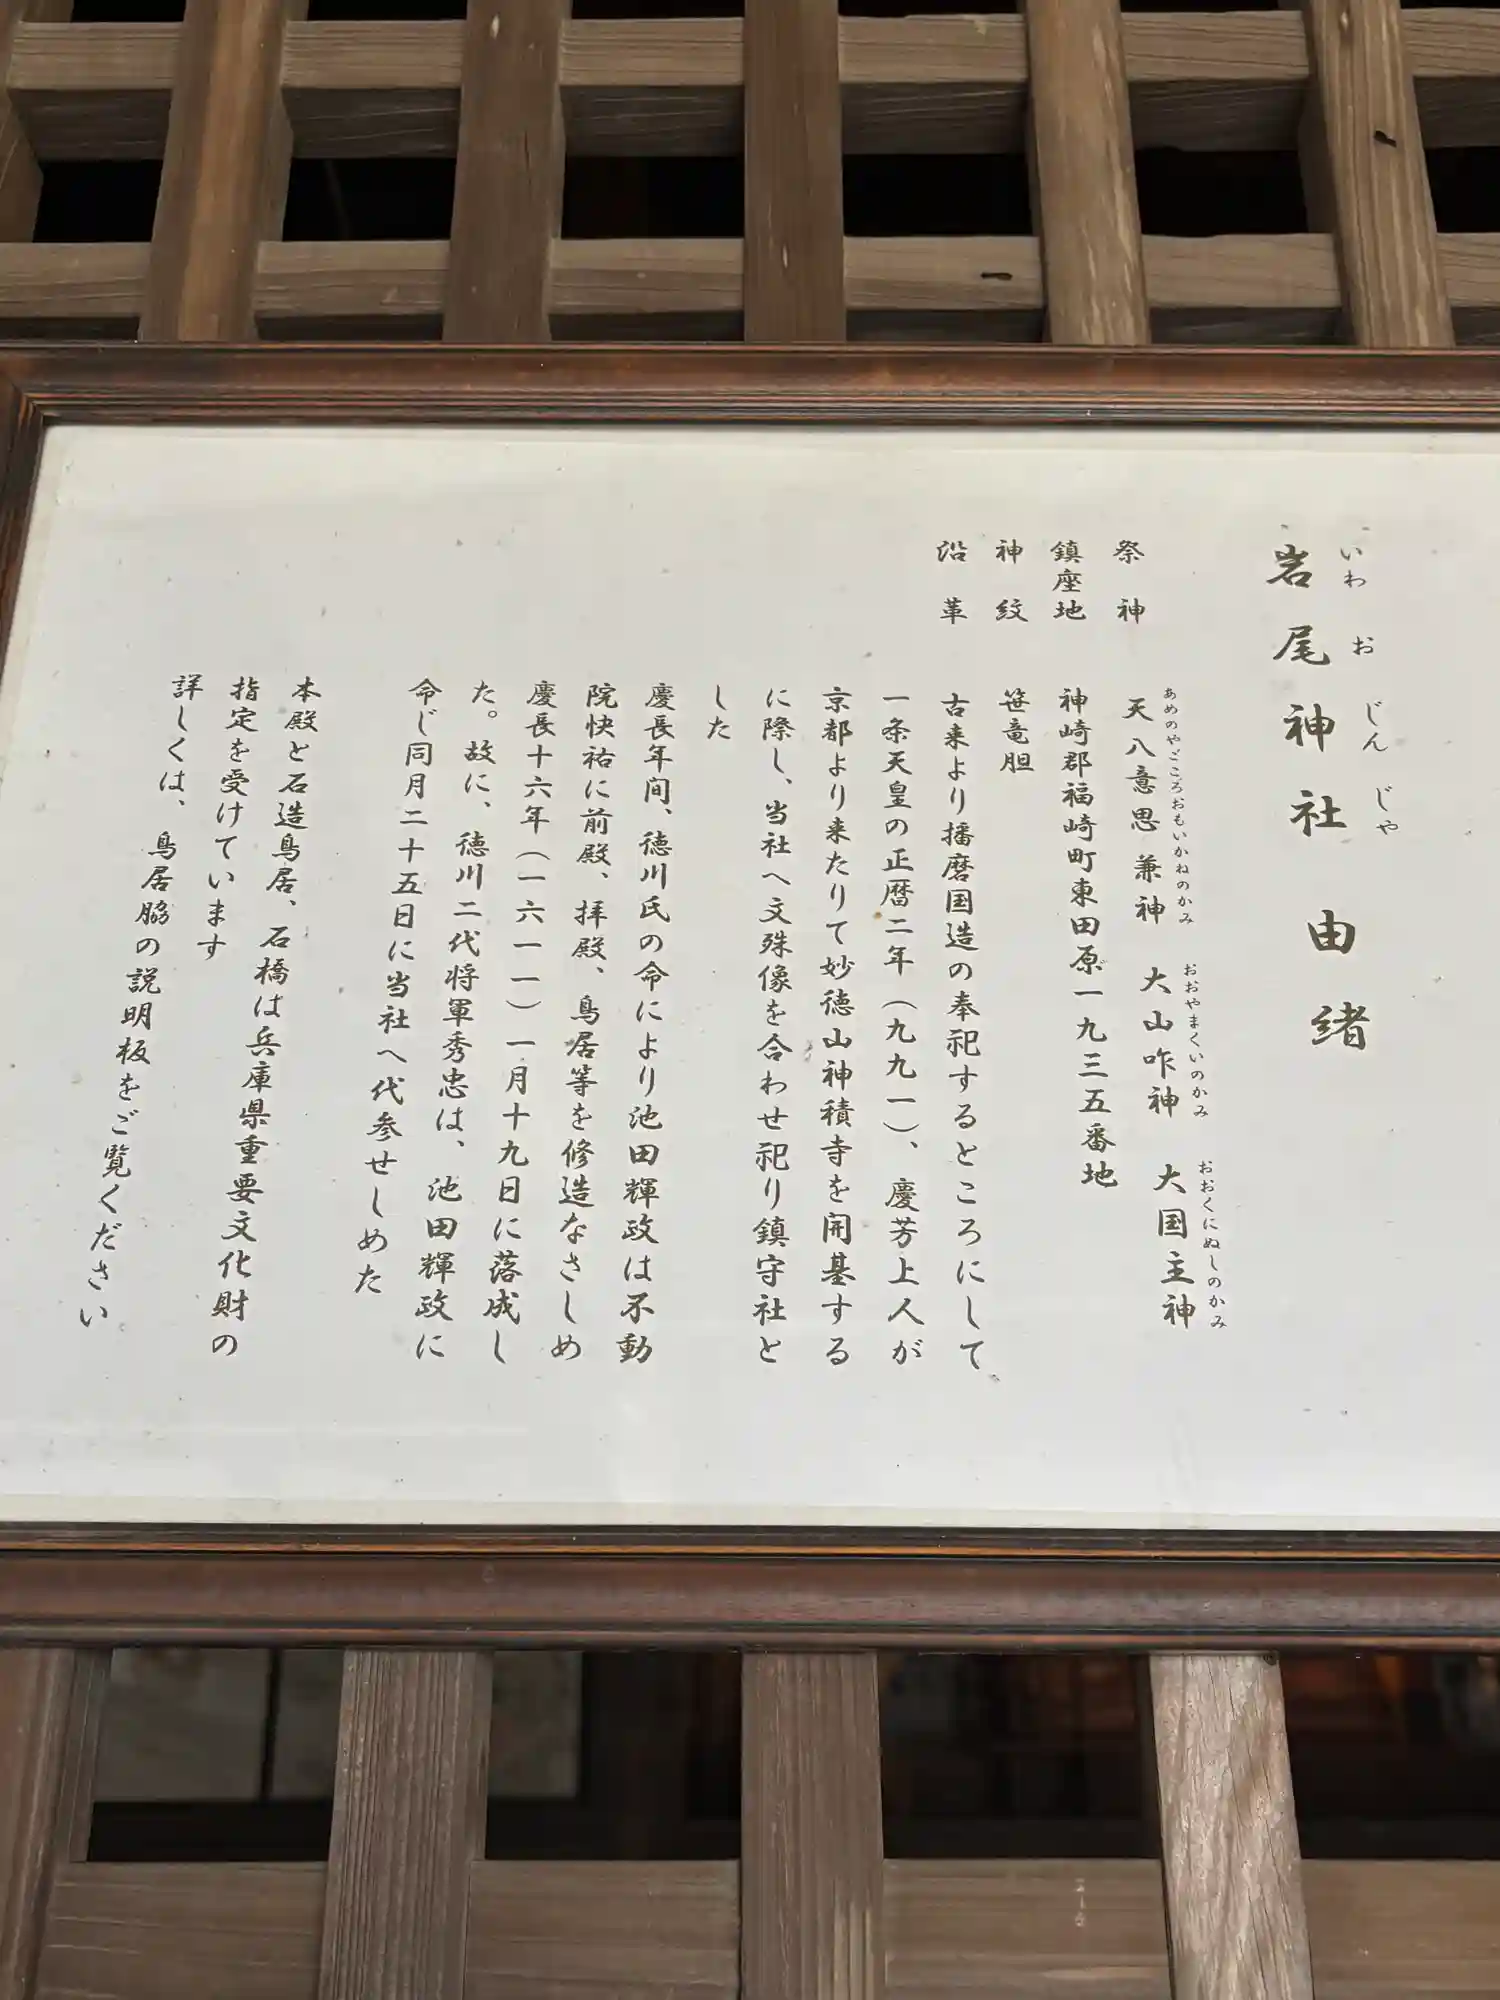 岩尾神社 由緒
いわ お じん じゃ
祭神 天八意思兼神 大山咋神 大国主神
あめのやごころおもいかねのかみ おおやまくいのかみ おおくにぬしのかみ
鎮座地 神崎郡福崎町東田原一九三五番地
神紋 笹竜胆
沿革 古来より播磨国造の奉祀するところにして、
一条天皇の正暦二年(九九一)、慶芳上人が
京都より来たりて妙徳山神積寺を開基する
に際し、当社へ文殊像を合わせ祀り鎮守社と
した
慶長年間、徳川氏の命により池田輝政は不動
院快祐に前殿、拝殿、鳥居等を修造なさしめ
慶長十六年(一六一一)一月十九日に落成し
た。故に、徳川二代将軍秀忠は、池田輝政に
命じ同月二十五日に当社へ代参せしめた
本殿と石造鳥居、石橋は兵庫県重要文化財の
指定を受けています
詳しくは、鳥居脇の説明板をご覧ください